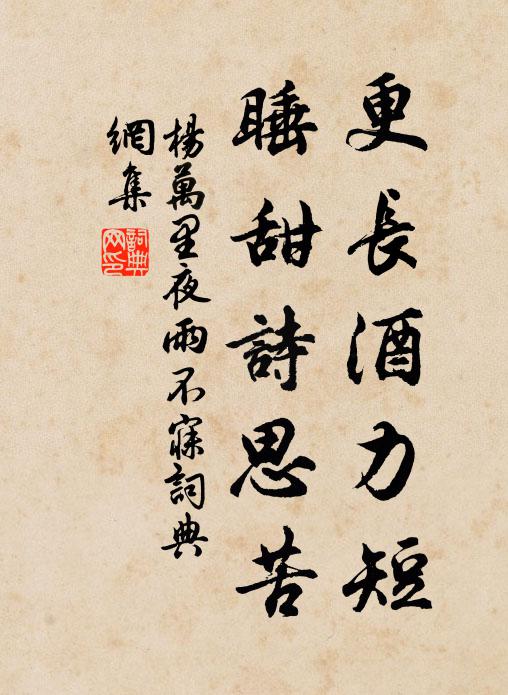 更長酒力短
睡甜詩思苦
楊萬里夜雨不寐詞典
網集
詞典
网印